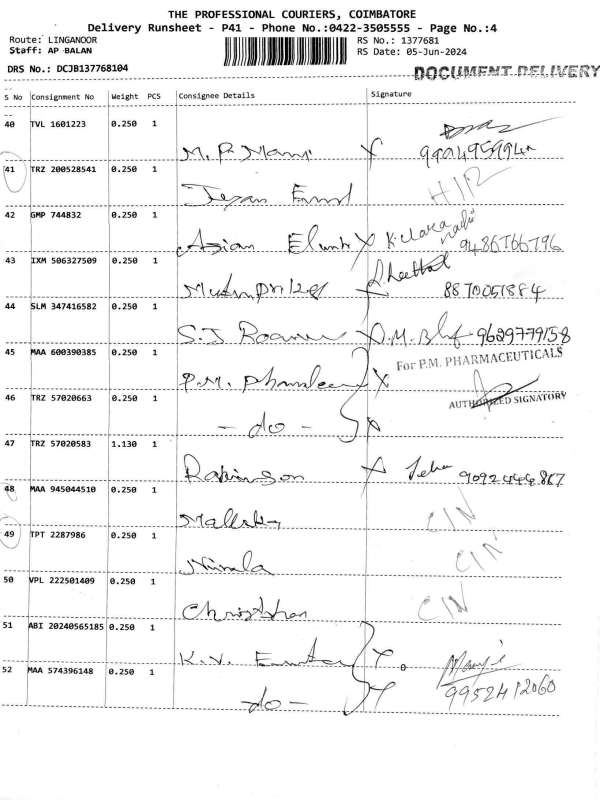 THE PROFESSIONAL COURIERS, COIMBATORE
Delivery Runsheet - P41 - Phone No.:0422-3505555 - Page No.:4
Route: LINGANOOR RS No.: 1377681
Staff: AP BALAN RS Date: 05-Jun-2024
DRS No.: DCJB137768104 DOCUMENT DELIVERY
S No Consignment No Weight PCS Consignee Details Signature
40 TVL 1601223 0.250 1
M. P. Mani X
41 TRZ 200528541 0.250 1
42 GMP 744832 0.250 1
Asian X 9486766796
43 IXM 506327509 0.250 1
8870051884
44 SLM 347416582 0.250 1
S.J 9629779158
45 MAA 600390385 0.250 1 For P.M. PHARMACEUTICALS
P.M. X
46 TRZ 57020663 0.250 1 AUTHORIZED SIGNATORY
- do - X
47 TRZ 57020583 1.130 1
Robinson X 9092444867
48 MAA 945044510 0.250 1
49 TPT 2287986 0.250 1
Nirmala
50 VPL 222501409 0.250 1
51 ABI 20240565185 0.250 1
K.V.
52 MAA 574396148 0.250 1
- do - 9952412060